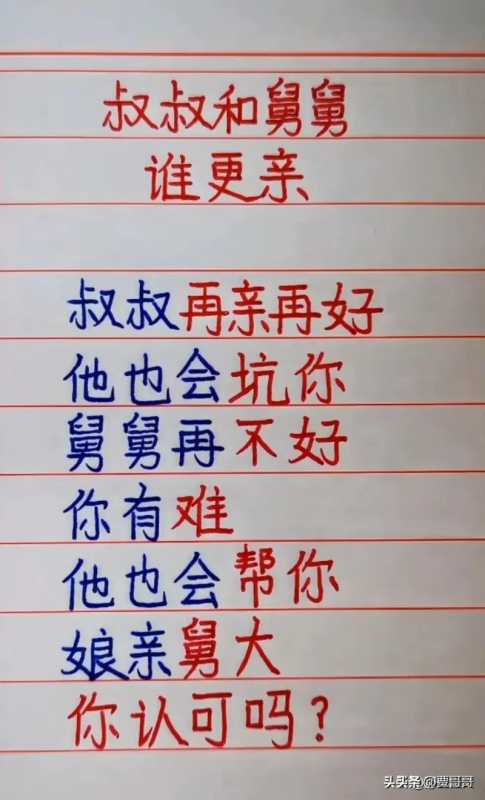 叔叔和舅舅
谁更亲
叔叔再亲再好
他也会坑你
舅舅再不好
你有难
他也会帮你
娘亲舅大
你认可吗？
头条@贾哥哥